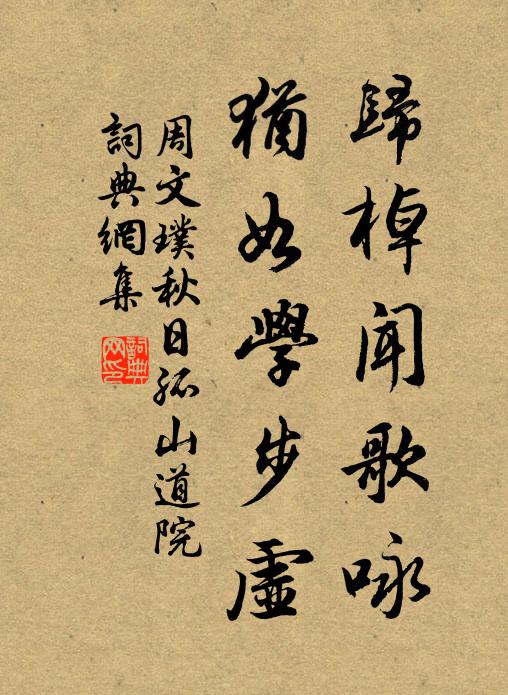 歸棹聞歌咏
猶如學步虛
周文璞秋日孤山道院
詞典網集
詞典網印